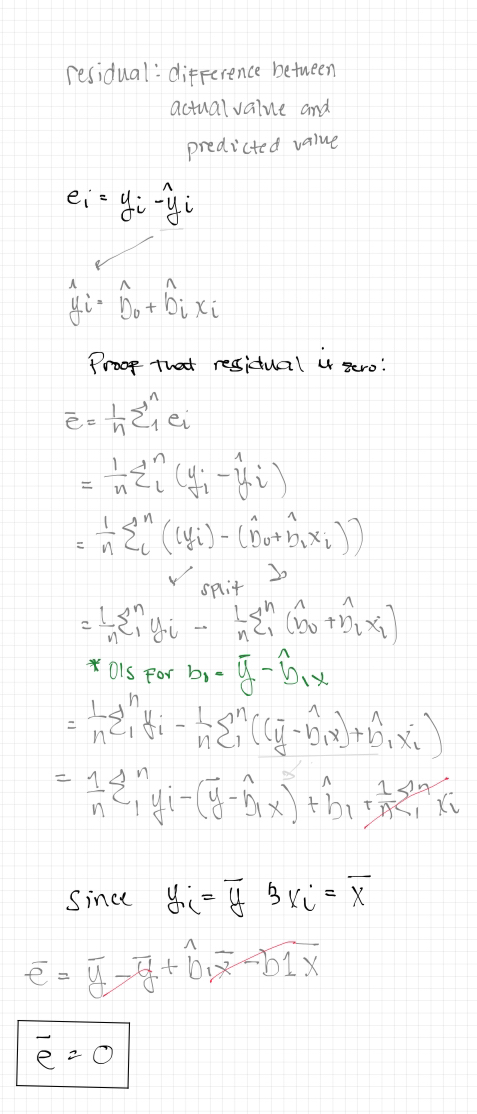 residual: difference between
actual value and
predicted value
eᵢ = yᵢ - ŷᵢ
ŷᵢ = b̂₀ + b̂ᵢ xᵢ
Proof that residual is zero:
ē = 1/n Σ₁ⁿ eᵢ
= 1/n Σᵢⁿ (yᵢ - ŷᵢ)
= 1/n Σᵢⁿ ((yᵢ) - (b̂₀ + b̂₁xᵢ))
split
= 1/n Σ₁ⁿ yᵢ - 1/n Σ₁ⁿ (b̂₀ + b̂₁xᵢ)
* OLS for b₀ = ȳ - b̂₁x
= 1/n Σ₁ⁿ yᵢ - 1/n Σ₁ⁿ ((ȳ - b̂₁x) + b̂₁xᵢ)
= 1/n Σ₁ⁿ yᵢ - (ȳ - b̂₁x) + b̂₁ + 1/n Σ₁ⁿ xᵢ
since yᵢ = ȳ & xᵢ = x̄
ē = ȳ - ȳ + b̂₁x̄ - b1x̄
ē = 0